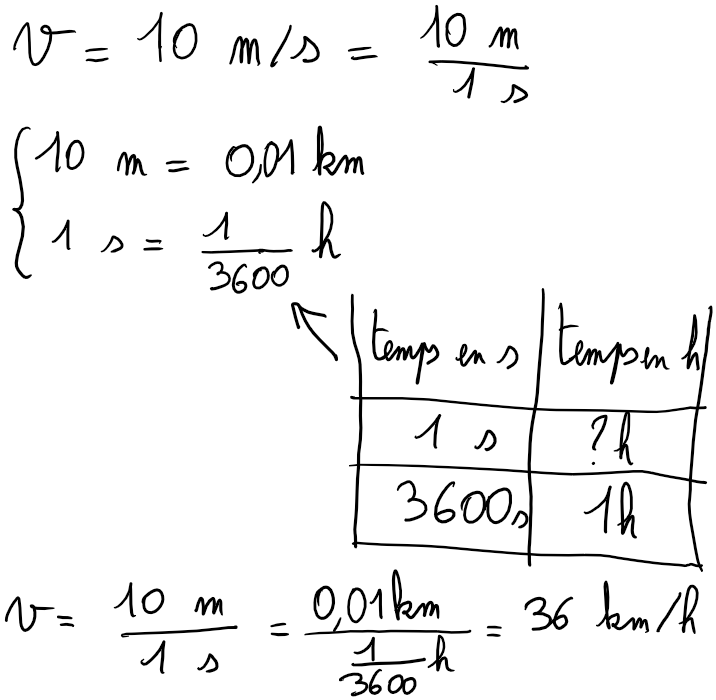 v = 10 m/s = 10 m / 1 s
10 m = 0,01 km
1 s = 1/3600 h
temps en s | temps en h
1 s | ? h
3600 s | 1 h
v = 10 m / 1 s = 0,01 km / (1/3600 h) = 36 km/h